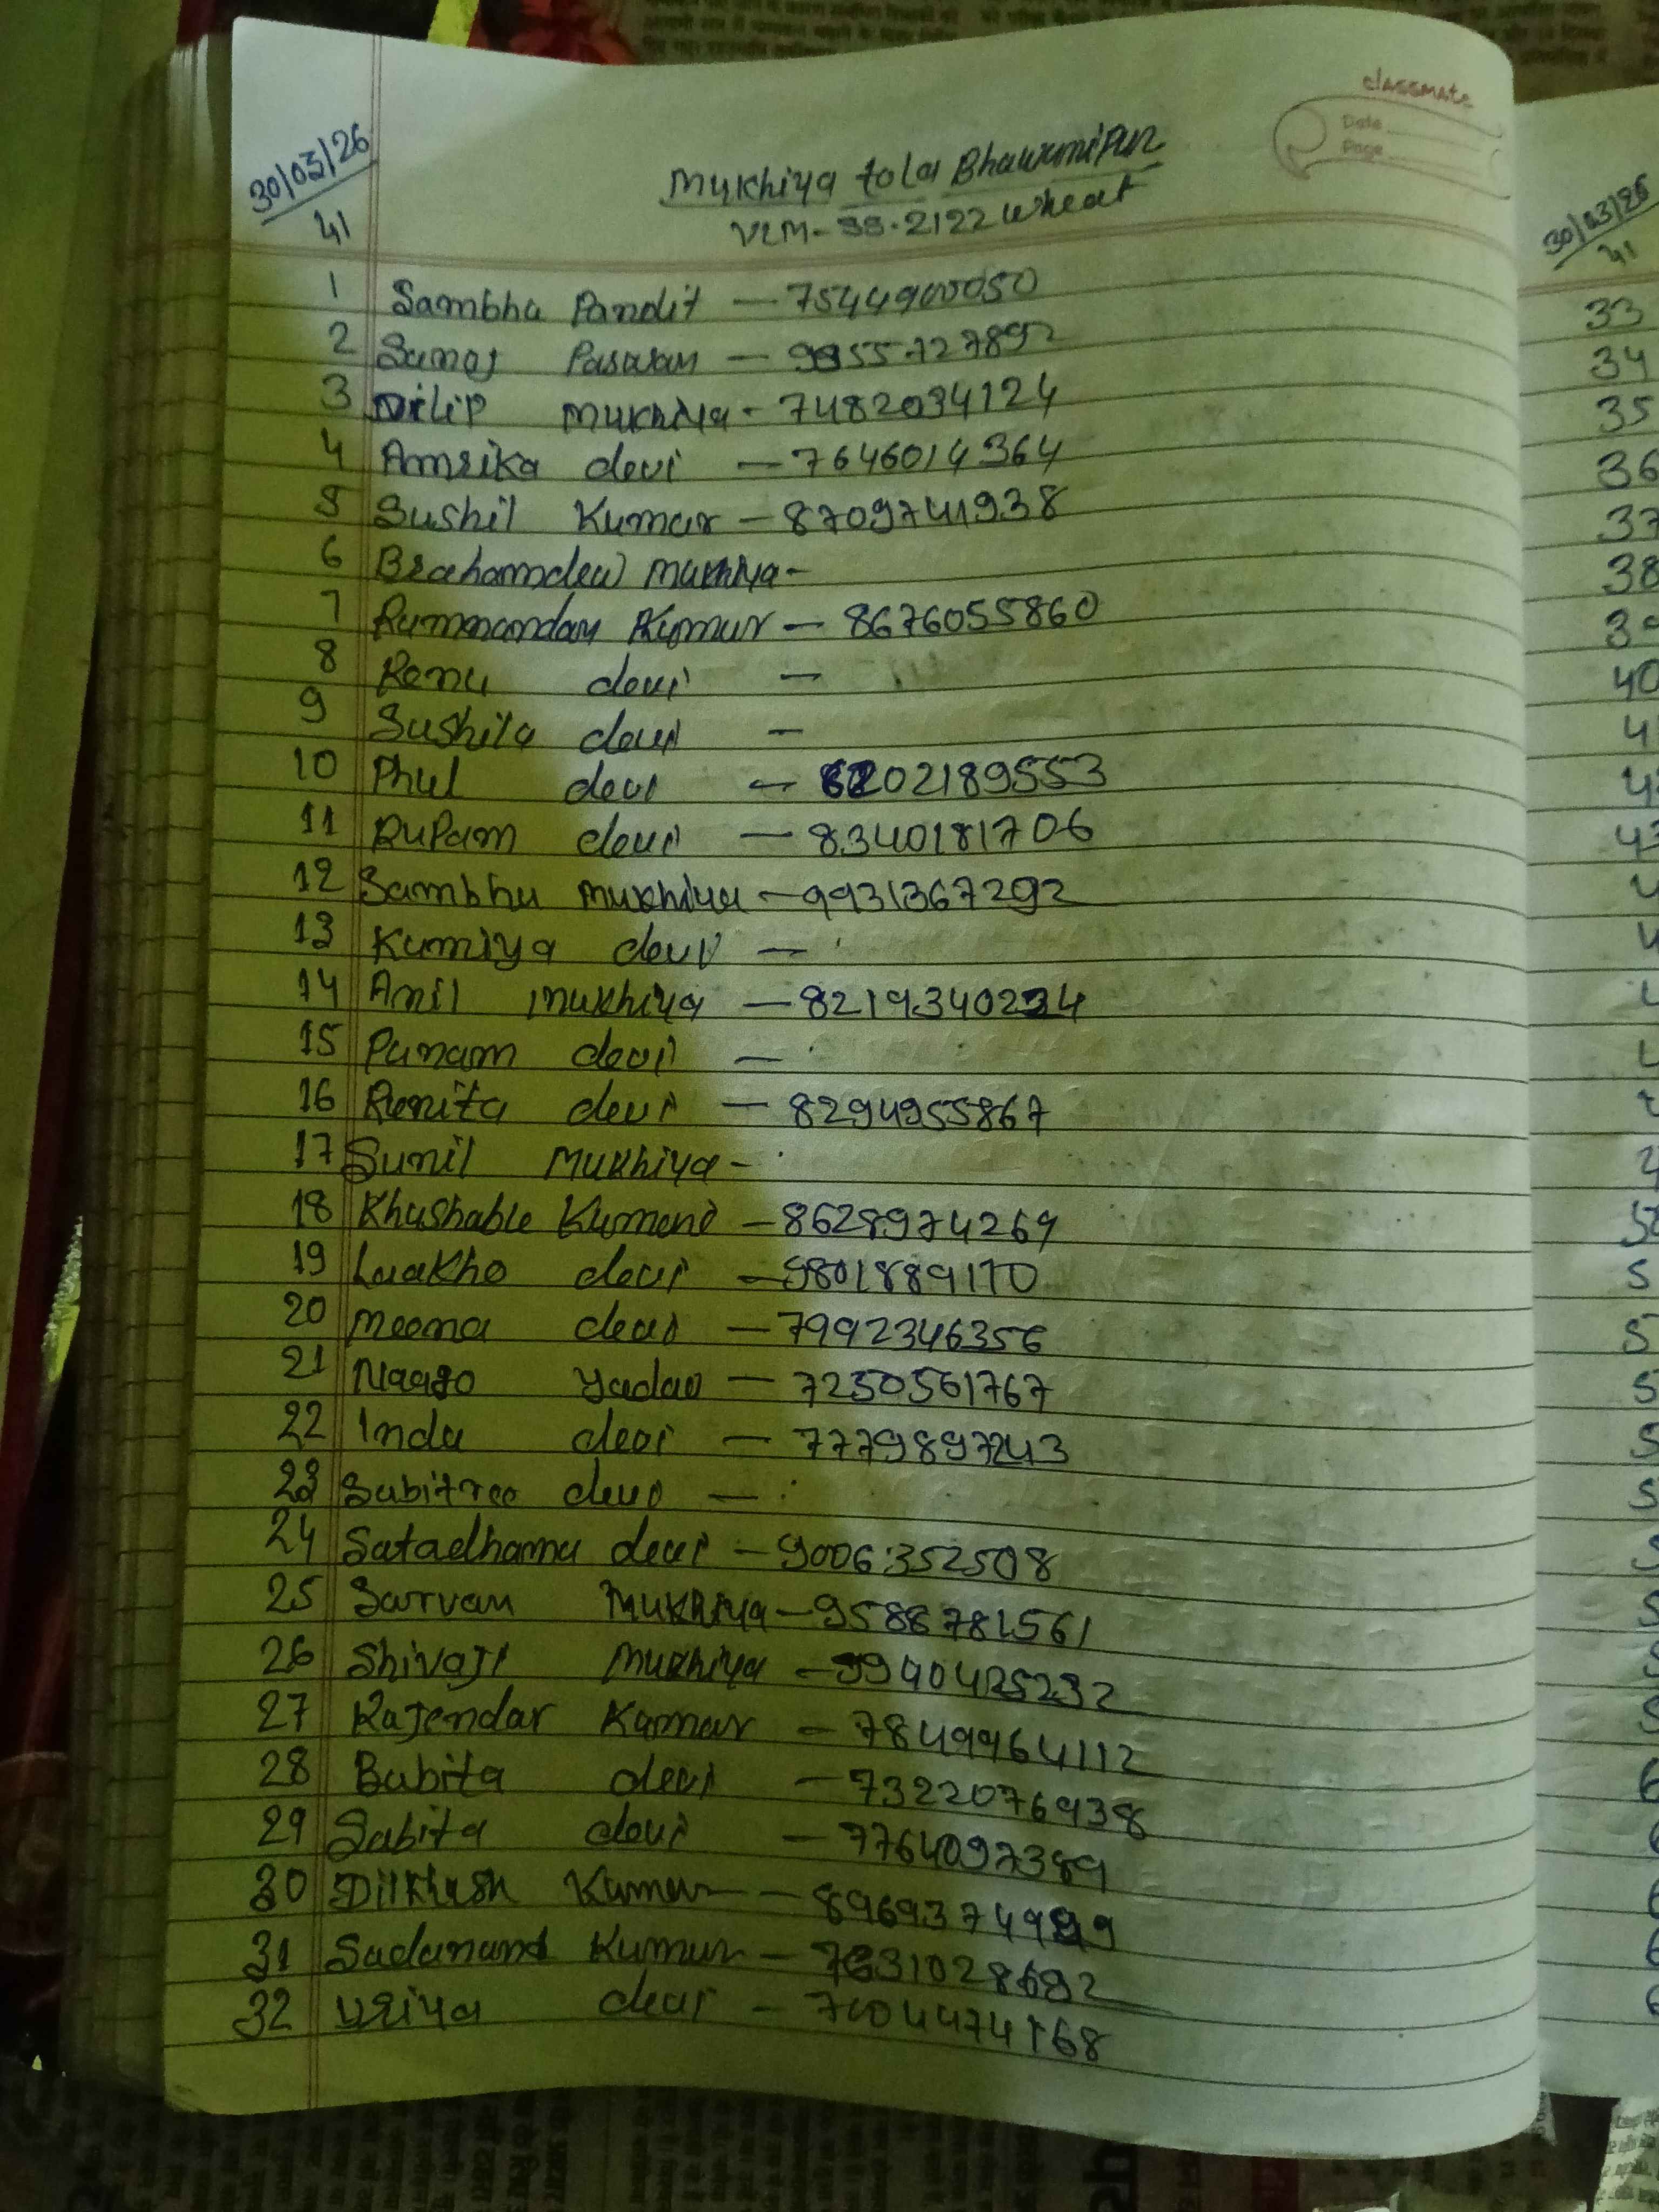 classmate
Date
Page
30/03/26
41
Mukhiya tola Bhawanipur
VLM-33.2122 Wheat
1 Sambhu Pandit — 7544900050
2 Sanoj Paswan — 9955727892
3 Dilip Mukhiya - 7482034124
4 Amrika devi — 7646014364
5 Sushil Kumar — 8709741938
6 Brahamdew Mukhiya -
7 Ramnandan Kumar — 8676055860
8 Renu devi —
9 Sushila devi —
10 Phul devi — 6202189553
11 Rupam devi — 8340181706
12 Sambhu Mukhiya — 9931367292
13 Kumiya devi —
14 Anil Mukhiya — 8219340234
15 Punam devi —
16 Runita devi — 8294955867
17 Sunil Mukhiya -
18 Khushable Kumari — 8628974269
19 Laakho devi — 9801889170
20 Meena devi — 7992346356
21 Naago Yadav — 7250561767
22 Inda devi — 7779897243
23 Sabitree devi —
24 Sataelhama devi — 9006352508
25 Sarvan Mukhiya — 9588781561
26 Shivaji Mukhiya — 9940425232
27 Rajendar Kumar — 7849964112
28 Babita devi — 7322076938
29 Sabita devi — 7764097389
30 Dilkhush Kumar — 8969374999
31 Sadanand Kumar — 7631028692
32 Uriya devi — 7404474168
30/03/26
41
33
34
35
36
37
38
39
40